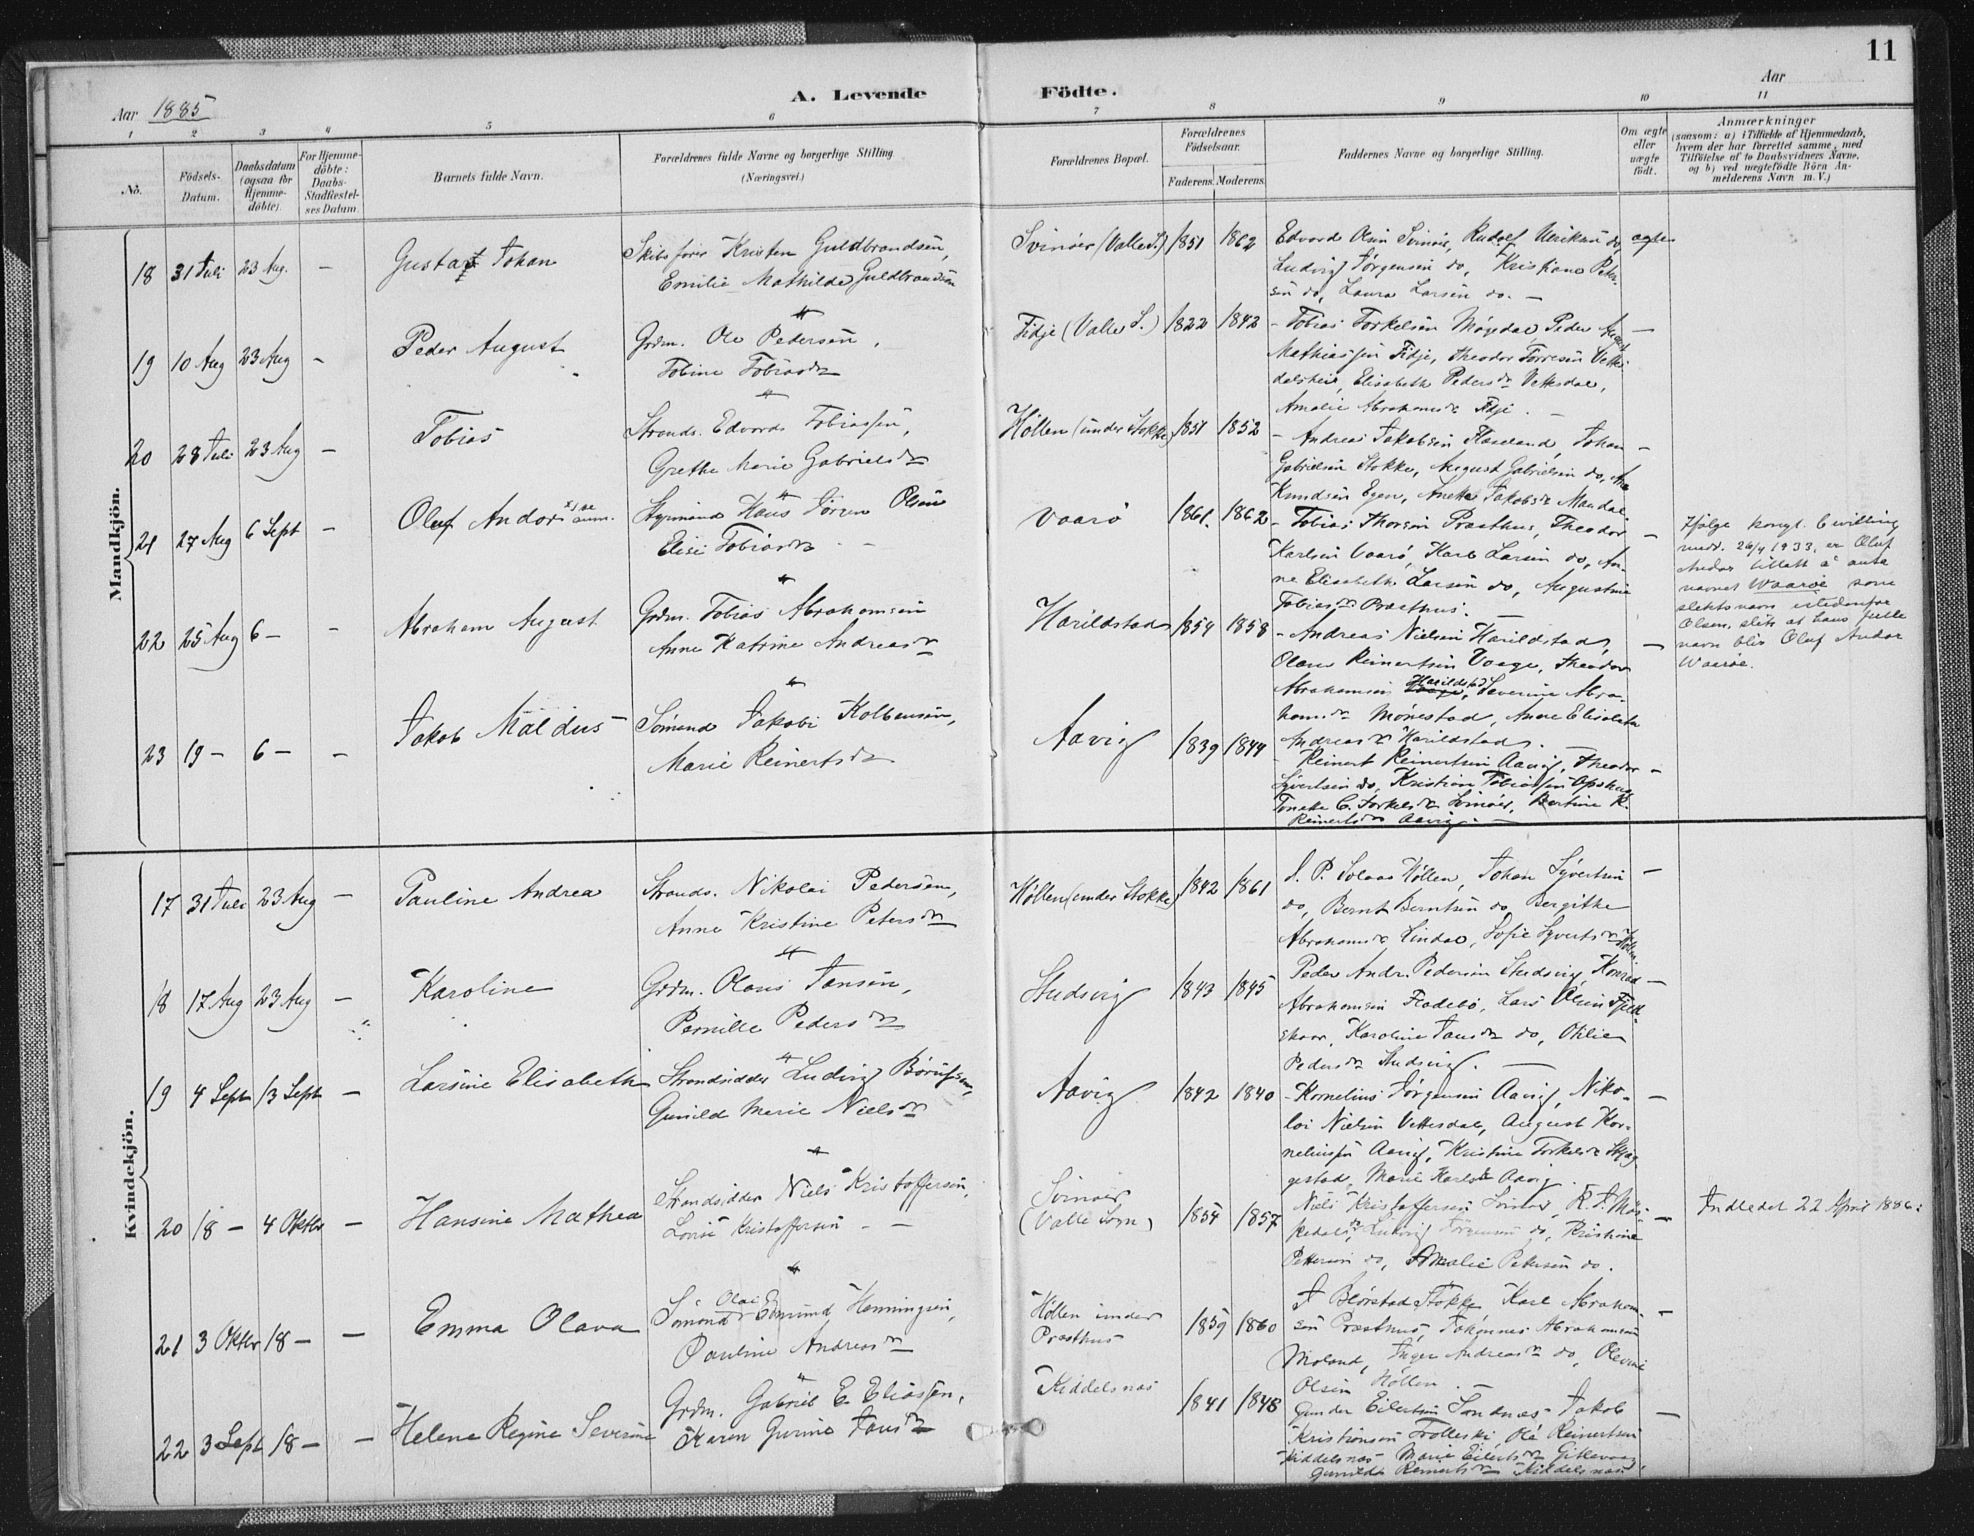 11
Aar 1885
A. Levende Födte.
Aar
1 2 3 4 5 6 7 8 9 10 11
No.
Födsels-Datum.
Daabsdatum (ogsaa for Hjemme-döbte).
For Hjemme-döbte: Daabs-StadfæsteI-ses Datum.
Barnets fulde Navn.
Forældrenes fulde Navne og borgerlige Stilling (Næringsvei.)
Forældrenes Bopæl.
Forældrenes Födselsaar.
Faderens. Moderens.
Faddernes Navne og borgerlige Stilling.
Om ægte eller uægte födt.
Anmærkninger
(saasom: a) i Tilfælde af Hjemmedaab,
hvem der har forrettet samme, med
Tilföielse af to Daabsvidners Navne,
og b) ved uægtefödte Börn An-
melderens Navn m. V.)
Mandkjön.
18 31 Juli 23 Aug. – Gustav Johan
Skibsfører Kristen Guldbrandsen,
Emilie Mathilde Guldbrandsen
Svinöer (Valle S.) 1851 1862
Edvard Olsen Svinöer, Rudolf Ulriksen do, ægte
Ludvig Jörgensen do, Kristiane Peter-
sen do, Laura Larsen do. –
19 10 Aug 23 Aug – Peder August
Grdm. Ole Pedersen,
Tobine Tobiasdr
Fidje (Valle S.) 1822 1842
– Tobias Torkelsen Möydal, Peder August –
Mathiassen Fidje, Theodor Torresen Vettes-
dalsheie, Elisabeth Pedersdr Vettesdal,
Amalie Abrahamsdr Fidje. –
20 28 Juli 23 Aug – Tobias
Strands. Edvard Tobiassen,
Grethe Marie Gabrielsdr
Höllen (under Stokke) 1851 1852
– Andreas Jakobsen Haaland, Johan –
Gabrielsen Stokke, August Gabrielsen do,
Knudsen Egen, Anethe Jakobsdr Mandal
21 27 Aug 6 Sept – Oluf Andor se anm.
Styrmand Hans Jörgen Olsen
Elise Tobiasdr –
Vaarö 1861. 1862
– Tobias Thorsen Præsthus, Theodor –
Karlsen Vaarö, Karl Larsen do, An-
ne Elisabeth Larsen do, Augustine
Tobiasdr Præsthus. –
Ifölge kongl. bevilling
medd. 26/4 1933, er Oluf
Andor tillatt å anta
navnet Waaröe som
slektsnavn istedenfor
Olsen, slik at hans fulle
navn blir Oluf Andor
Waaröe.
22 25 Aug 6 – – Abraham August
Grdm. Tobias Abrahamsen
Anne Katrine Andreasdr
Harildstad 1854 1858
– Andreas Nielsen Harildstad, –
Olaus Reinertsen Vaage, Theodor
Abrahamsen Harildstad, Severine Abra-
hamsdr Mönestad, Anne Elisabeth
Andreasdr Harildstad. –
23 19 – 6 – – Jakob Maldus
Sömand Jakob Kolbensen,
Marie Reinertsdr
Aavig 1839 1844
– Reinert Reinertsen Aavig, Theodor –
Syvertsen do, Kristian Tobiassen Opshus,
Toneke C. Torkelsdr Svinöer, Bertine R.
Reinertsdr Aavig. –
Kvindekjön.
17 31 Juli 23 Aug – Pauline Andrea
Strands. Nikolai Pedersen,
Anne Kristine Petersdr
Höllen (under Stokke) 1842 1861
J. P. Solaas Höllen, Johan Syvertsen –
do, Bernt Berntsen do, Bergithe
Abrahamsdr Lindal, Sofie Syvertsdr Höllen
18 17 Aug 23 Aug – Karoline
Grdm. Olaus Jansen,
Pernille Pedersdr
Studsvig 1843 1845
Peder Andr. Pedersen Studsvig, Konrad –
Abrahamsen Fladebö, Lars Olsen Fjeld-
skaar, Karoline Jansdr do, Othilie
Pedersdr Studsvig. –
19 4 Sept 13 Sept – Larsine Elisabeth
Strandsidder Ludvig Börufsen,
Gunild Marie Nielsdr
Aavig 1842 1840
– Kornelius Jörgensen Aavig, Niko- –
lai Nielsen Vettesdal, August Kor-
neliussen Aavig, Kristine Torkelsdr Skjæg-
gestad, Marie Karlsdr Aavig.
20 18 – 4 Oktbr – Hansine Mathea
Strandsidder Niels Kristoffersen,
Lovise Kristoffersen –
Svinöer (Valle Sogn) 1854 1857
Niels Kristoffersen Svinöer, R. J. Mös-
Ludvig Jörgensen do, Kristine
Pettersen do, Amalie Petersen do.
Indledet 22 April 1886.
21 3 Oktbr 18 – – Emma Olava
Sömand Olai Edmund Henningsen,
Pauline Andreasdr
Höllen under Præsthus 1859 1860
J Blörstad Stokke, Karl Abraham- –
sen Præsthus, Johannes Abrahamsen
Moland, Inger Andreasdr do, Olevine
Olsen Höllen. –
22 3 Sept 18 – – Helene Regine Severine
Grdm. Gabriel E. Eliassen,
Karen Gurine Jansdr
Kiddelsnæs 1841 1848
Gunder Eilertsen Sandnæs, Jakob –
Kristiansen Trolleski, Ole Reinertsen
Kiddelsnæs, Marie Eilertsdr Gitlevaag
Gunilde Reinertsdr Kiddelsnæs